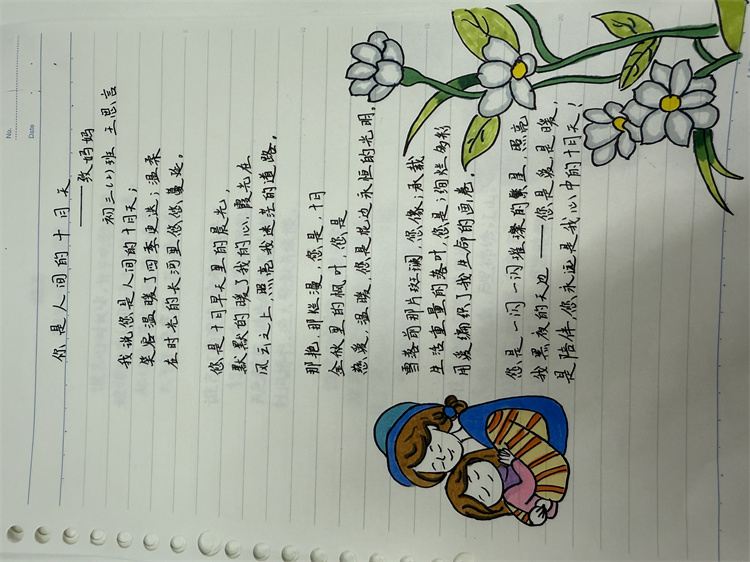 No.
Date
你是人间的十月天
——致妈妈
初三(2)班 王思言
我说您是人间的十月天；
笑容温暖了四季更迭；温柔
在时光的长河里悠悠蔓延。
您是十月早天里的晨光，
默默的暖了我的心，霞光在
风云之上，照亮我迷茫的道路。
那艳，那烂漫，您是，十月
金秋里的枫叶，您是
慈爱，温暖，您是花边永恒的光明。
雪落前那片斑斓，您像；承载
生活重量的落叶，您是；绚烂多彩
用爱编织了我生命的画卷。
您是一闪一闪璀璨的繁星，照亮
我黑夜的天边——您是爱，是暖，
是陪伴，您永远是我心中的十月天！